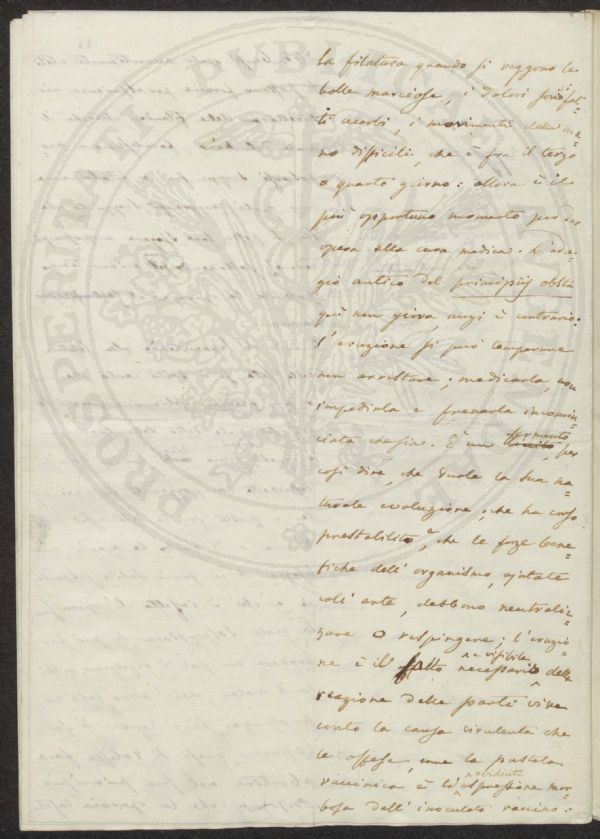 la filatura quando si veggono le
bolle marciose, i dolori sono fat=
ti acerbi, i movimenti della ma=
no difficili, che è fra il terzo
o quarto giorno: allora è il
più opportuno momento per dar
opera alla cura medica. L'ada=
gio antico del principiis obsta
quì non giova, anzi è contrario:
l'eruzione si può temperare
non arrestare; medicarla, non
impedirla e frenarla incomin=
ciata che sia. È un fermento, per
così dire, che vuole la sua na=
turale evoluzione, che ha corso
prestabilito, e che le forze bene=
fiche dell'organismo, ajutate
coll'arte, debbono neutraliz=
zare o respingere; l'eruzio=
ne è il fatto necessario e visibile della
reazione delle parti vive
contro la causa virulenta che
le offese, come la pustola
vaccinica è la evidente espressione mor=
bosa dell'inoculato vaccino.
PROSPERITATI PVBLICAE AVGENDAE